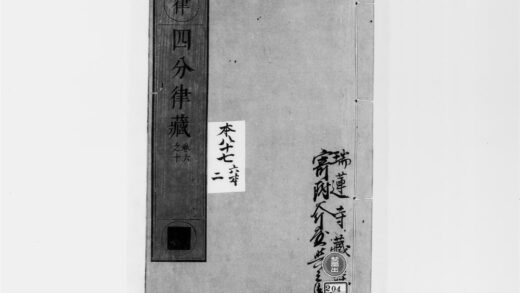 律
四分律藏
卷六
之十
本八十七
二
瑞蓮寺藏
寄附
204